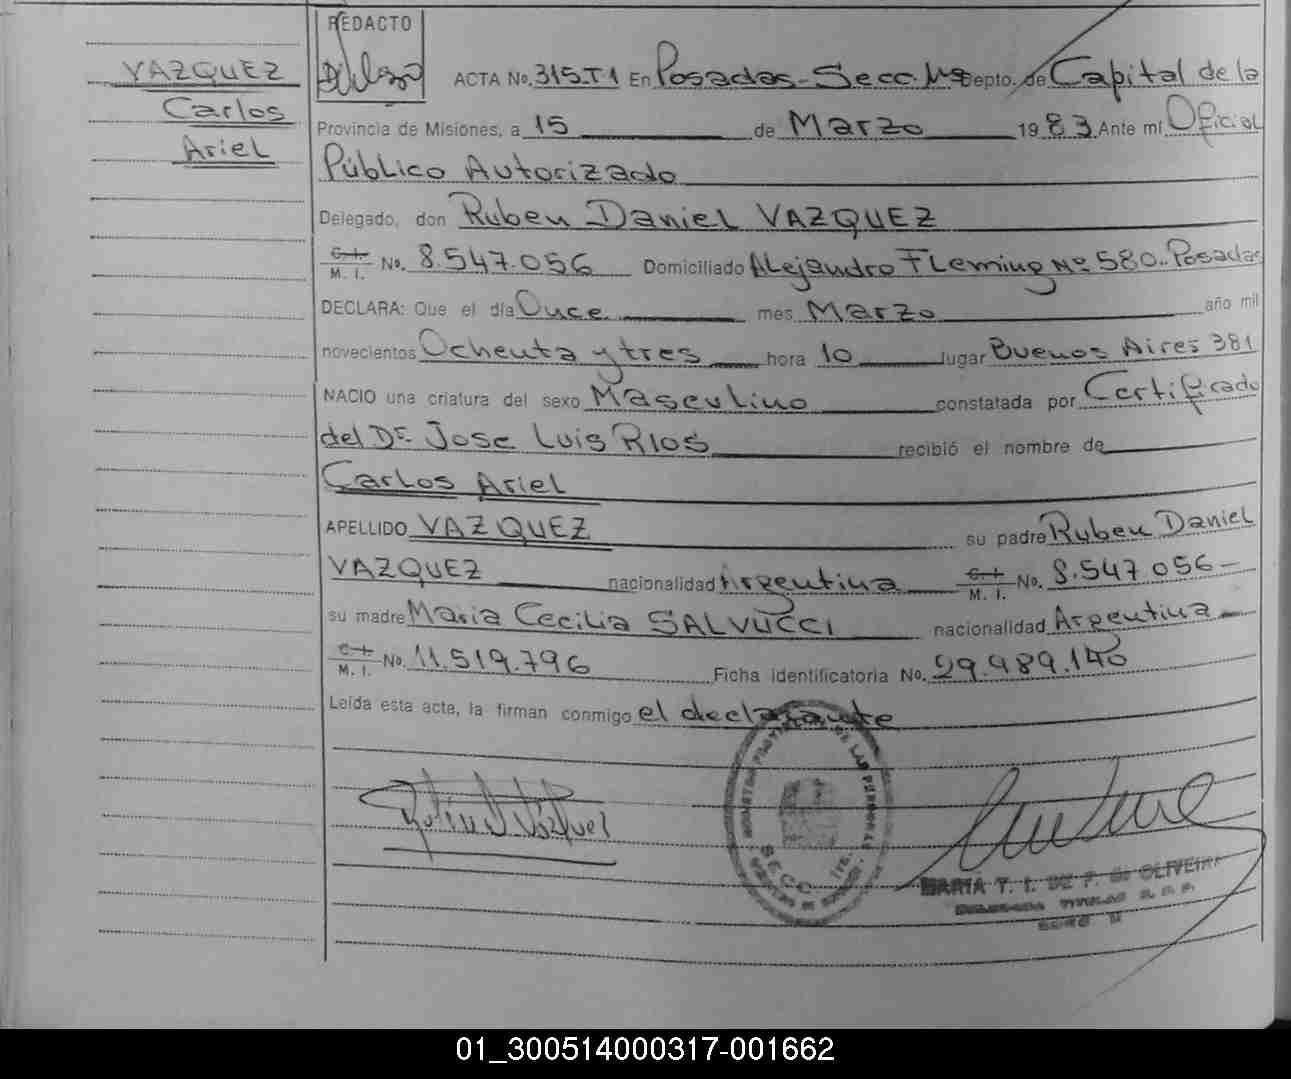 REDACTO
VAZQUEZ
Carlos
Ariel
ACTA No. 315.T1 En Posadas - Secc. 1ª Depto. de Capital de la
Provincia de Misiones, a 15 de Marzo 1983. Ante mí Oficial
Público Autorizado
Delegado, don Ruben Daniel VAZQUEZ
C. I. M. I. No. 8.547.056 Domiciliado Alejandro Fleming Nº 580.. Posadas
DECLARA: Que el día Once mes Marzo año mil
novecientos Ochenta y tres hora 10 lugar Buenos Aires 381
NACIO una criatura del sexo Masculino constatada por Certificado
del Dr. Jose Luis RIOS recibió el nombre de
Carlos Ariel
APELLIDO VAZQUEZ su padre Ruben Daniel
VAZQUEZ nacionalidad Argentina C. I. M. I. No. 8.547 056 -
su madre Maria Cecilia SALVUCCI nacionalidad Argentina
C. I. M. I. No. 11.519.796 Ficha identificatoria No. 29.989.140
Leída esta acta, la firman conmigo el declarante
SECC. 1ra.
MARIA T. I. DE F. de OLIVEIRA
01_300514000317-001662